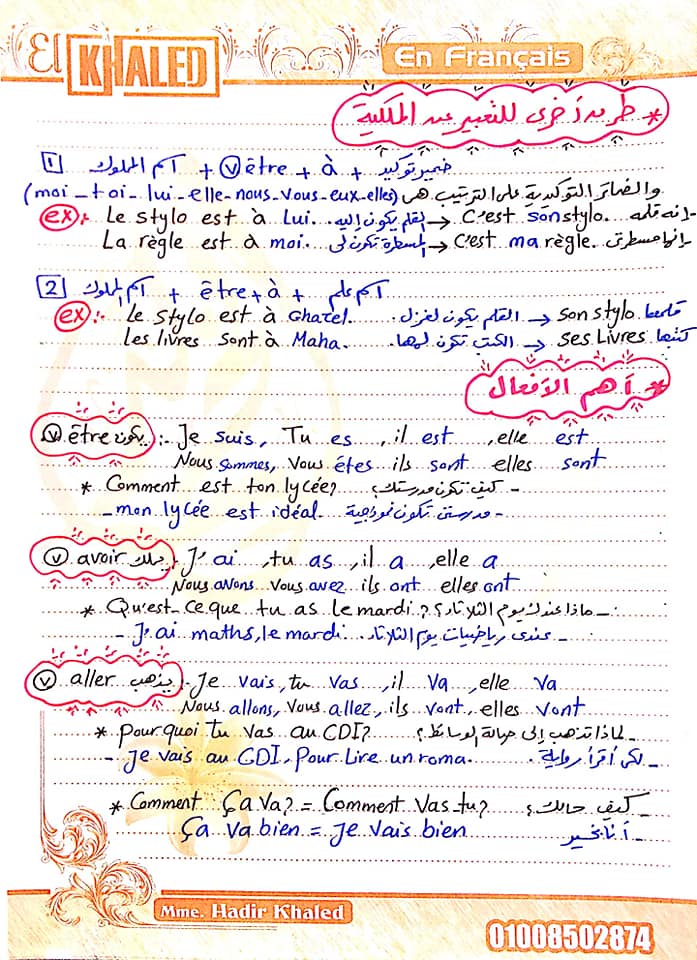 El KHALED
En Français
* طريقة أخرى للتعبير عن الملكية
1 اسم المملوك + (v) être + à + ضمير توكيد
والضمائر التوكيدية على الترتيب هى (moi _ toi _ lui _ elle _ nous _ vous _ eux _ elles)
ex :- Le stylo est à Lui. القلم يكون إليه → C'est son stylo. إنه قلمه
La règle est à moi. المسطرة تكون لى → C'est ma règle. إنها مسطرتى
2 اسم المملوك + être + à + اسم علم
ex :- Le stylo est à Ghazel. القلم يكون لغزل → son stylo قلمها
Les livres sont à Maha. الكتب تكون لمها → ses Livres كتبها
* أهم الأفعال
(v) être يكون :- Je suis, Tu es, il est, elle est
Nous sommes, Vous êtes ils sont elles sont
* Comment est ton lycée? كيف تكون مدرستك؟
- mon lycée est idéal. مدرستى تكون نموذجية
(v) avoir يملك :- J'ai, tu as, il a, elle a
Nous avons Vous avez ils ont elles ont
* Qu'est-ce que tu as le mardi? ماذا عندك يوم الثلاثاء؟
- J'ai maths, le mardi. عندى رياضيات يوم الثلاثاء
(v) aller يذهب :- Je vais, tu vas, il va, elle va
Nous allons, Vous allez, ils vont, elles vont
* Pourquoi tu vas au CDI? لماذا تذهب إلى صالة الوسائط؟
- Je vais au CDI, Pour Lire un roma. لكى أقرأ رواية
* Comment Ça va? = Comment vas-tu? كيف حالك؟
Ça va bien = Je vais bien أنا بخير
Mme. Hadir Khaled
01008502874